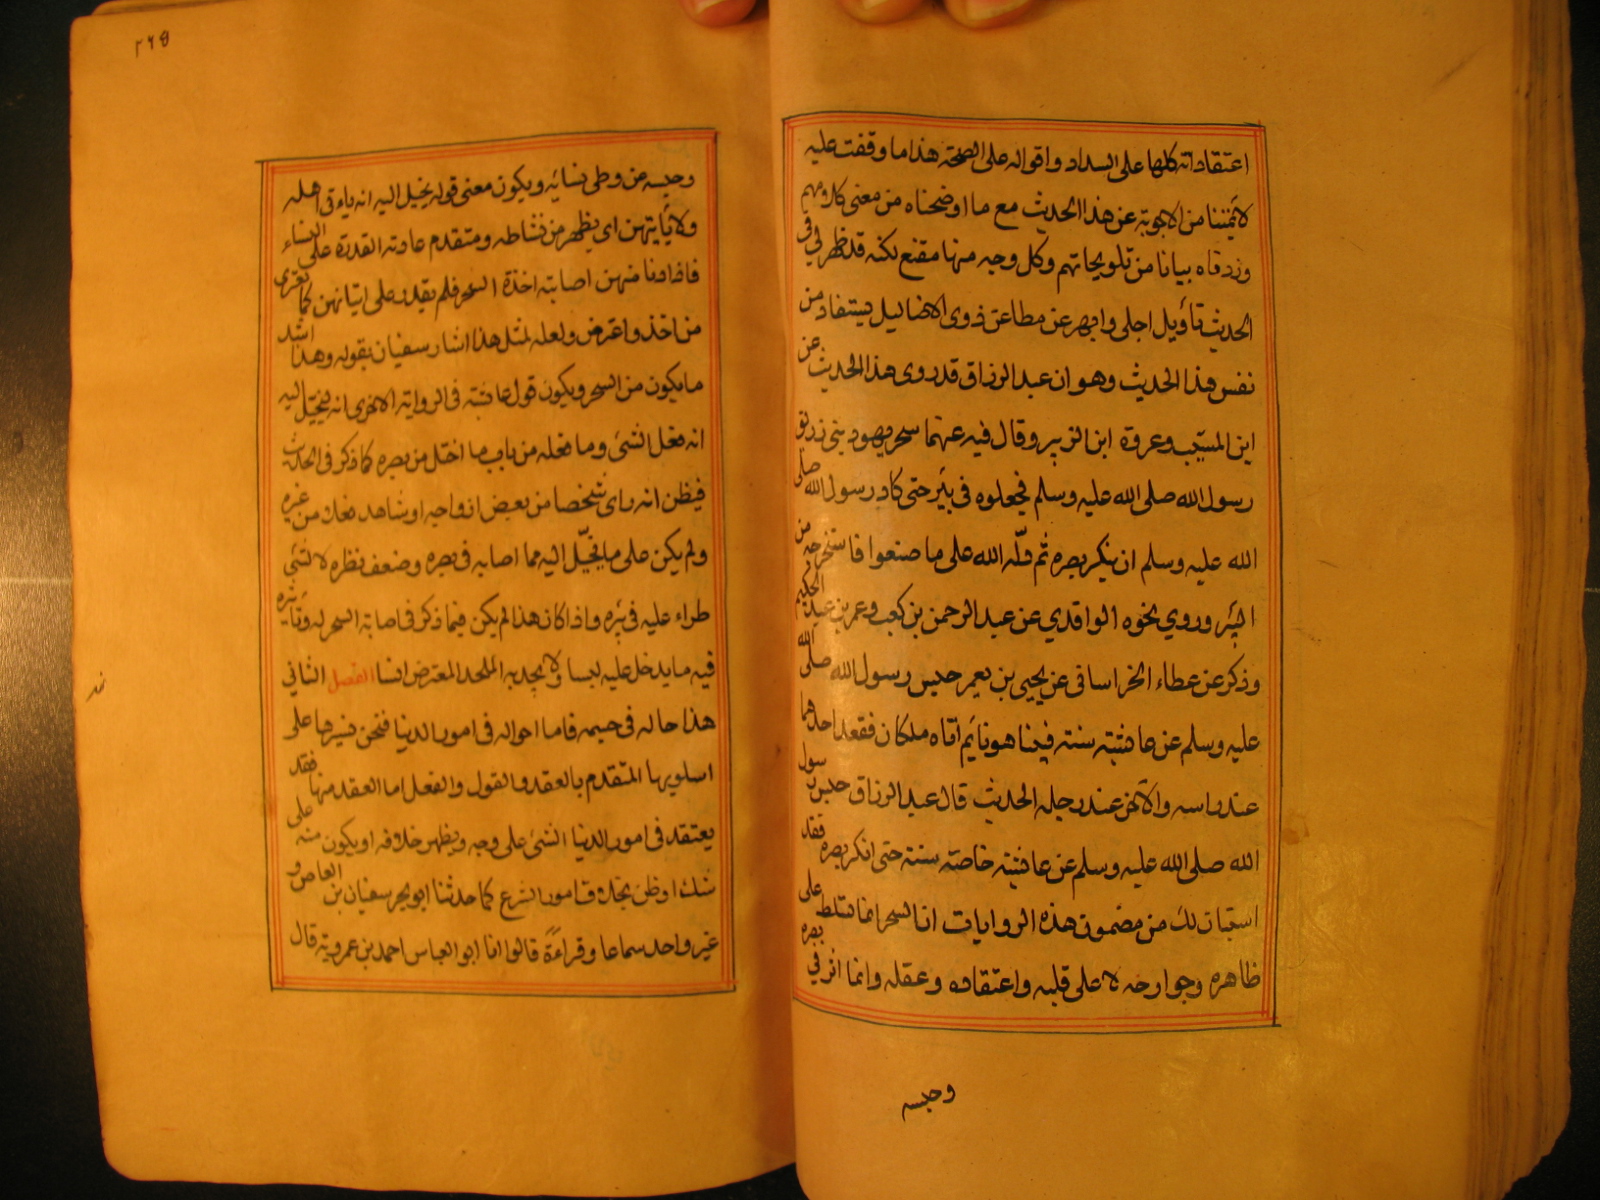 اعتقاداته كلها على السداد واقواله على الصحة هذا ما وقفت عليه
لائمتنا من الاجوبة عن هذا الحديث مع ما اوضحناه من معنى كلامهم
وزدناه بيانا من تلويحاتهم وكل وجه منها مقنع لكنه قد ظهر لي في
الحديث تاويل اجلى وابهر عن مطاعن ذوى الاضاليل يستفاد من
نفس هذا الحديث وهو ان عبد الرزاق قد روى هذا الحديث عن
ابن المسيّب وعروة ابن الزبير وقال فيه عنهما سحر يهود بنى زريق
رسول الله صلى الله عليه وسلم فجعلوه فى بئر حتى كاد رسول الله صلى
الله عليه وسلم ان ينكر بصره ثم دلّه الله على ما صنعوا فاستخرجه من
البئر وروي نحوه الواقدي عن عبد الرحمن بن كعب وعمر بن عبد الحكيم
وذكر عن عطاء الخراسانى عن يحيى بن يعمر حبس رسول الله صلى الله
عليه وسلم عن عائشة سنة فبينا هو نايم اتاه ملكان فقعد احدهما
عند راسه والآخر عند رجله الحديث قال عبد الرزاق حبس رسول
الله صلى الله عليه وسلم عن عائشة خاصة سنة حتى انكر بصره فقد
استبان لك من مضمون هذه الروايات ان السحر انما تسلط على
ظاهره وجوارحه لا على قلبه واعتقاده وعقله وانما اثر في بصره
وحبسه
٢٦٥
وحبسه عن وطى نسائه ويكون معنى قوله يخيل اليه انه ياءتى اهله
ولا يأتيهن اى يظهر من نشاطه ومتقدم عادته القدرة على النساء
فاذا دنا منهن اصابته اخذة السحر فلم يقدر على اتيانهن كما يعترى
من اخذ واعترض ولعله لمثل هذا اشار سفيان بقوله وهذا اشد
ما يكون من السحر ويكون قول عائشة فى الرواية الاخرى انه ليخيّل اليه
انه فعل الشئ وما فعله من باب ما اختل من بصره كما ذكر فى الحديث
فيظن انه راى شخصا من بعض ازواجه او شاهد فعلا من غيره
ولم يكن على ما يخيّل اليه مما اصابه فى بصره وضعف نظره لا لشئ
طراء عليه فى ميزه واذا كان هذا لم يكن فيما ذكر فى اصابة السحر له وتاثيره
فيه ما يدخل عليه لبسا ولا يجد به الملحد المعترض انسا الفصل الثاني
هذا حاله فى جسمه فاما احواله فى امور الدنيا فنحن نسبرها على
اسلوبها المتقدم بالعقد والقول والفعل اما العقد منها فقد
يعتقد فى امور الدنيا الشئ على وجه ويظهر خلافه او يكون منه على
شك او ظن بخلاف امور الشرع كما حدثنا ابو بحر سفيان بن العاص و
غير واحد سماعا وقراءة قالوا انا ابو العباس احمد بن عمر ويه قال